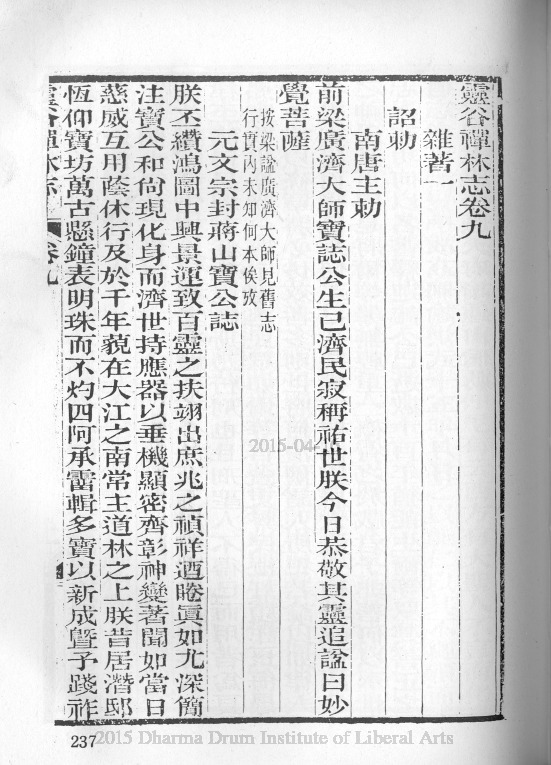 靈谷禪林志卷九
雜著一
詔勅
南唐主勅
前梁廣濟大師寶誌公生已濟民寂稱祐世朕今日恭敬其靈追諡曰妙
覺菩薩
按梁諡廣濟大師見舊志
行實內未知何本俟攷
元文宗封蔣山寶公誌
朕丕纘鴻圖中興景運致百靈之扶翊出庶兆之禎祥迺睠眞如尤深簡
注寶公和尙現化身而濟世持應器以垂機顯密齊彰神變著聞如當日
慈威互用蔭休行及於千年藐在大江之南常主道林之上朕昔居潛邸
恆仰寶坊萬古懸鐘表明珠而不灼四阿承霤輯多寶以新成曁予踐祚
靈谷禪林志 卷九
237
2015-04-
2015 Dharma Drum Institute of Liberal Arts